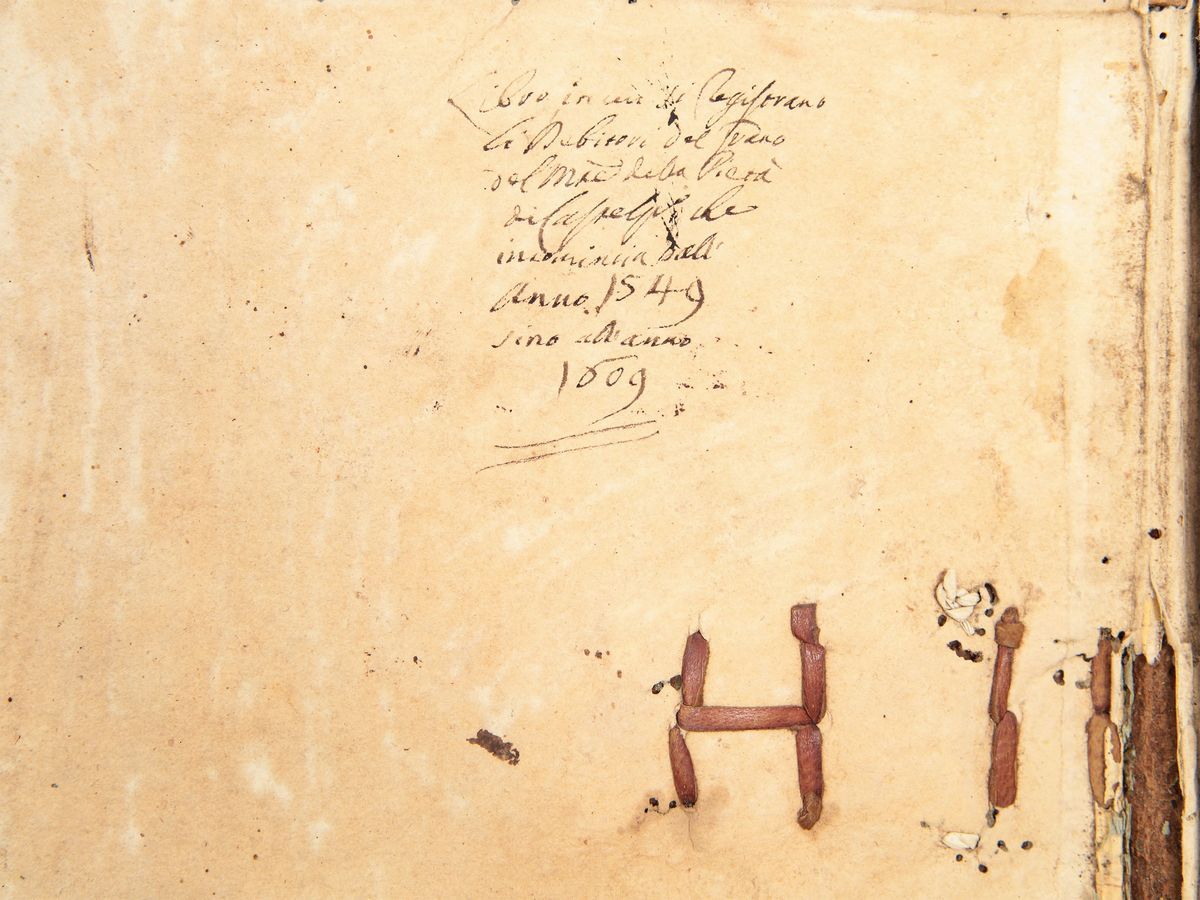 Libro in cui si Registrano
li Debitori del Grano
del Mte della Pietà
di che
incomincia dall'
Anno 1549
sino all'anno
1609